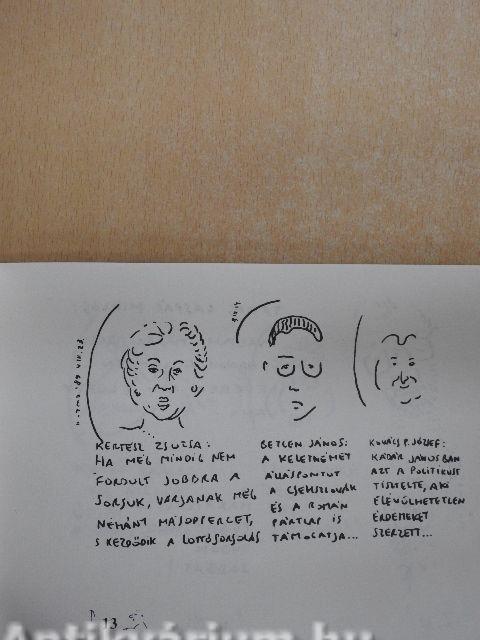 KERTÉSZ ZSUZSA:
HA MÉG MINDIG NEM
FORDULT JOBBRA A
SORSUK, VÁRJANAK MÉG
NÉHÁNY MÁSODPERCET,
S KEZDŐDIK A LOTTÓSORSOLÁS
BETLEN JÁNOS:
A KELETNÉMET
ÁLLÁSPONTOT
A CSEHSZLOVÁK
ÉS A ROMÁN
PÁRTLAP IS
TÁMOGATJA...
KOVÁCS P. JÓZSEF:
KÁDÁR JÁNOSBAN
AZT A POLITIKUST
TISZTELTE, AKI
ELÉVÜLHETETLEN
ÉRDEMEKET
SZERZETT...
13
Antikvárium.hu